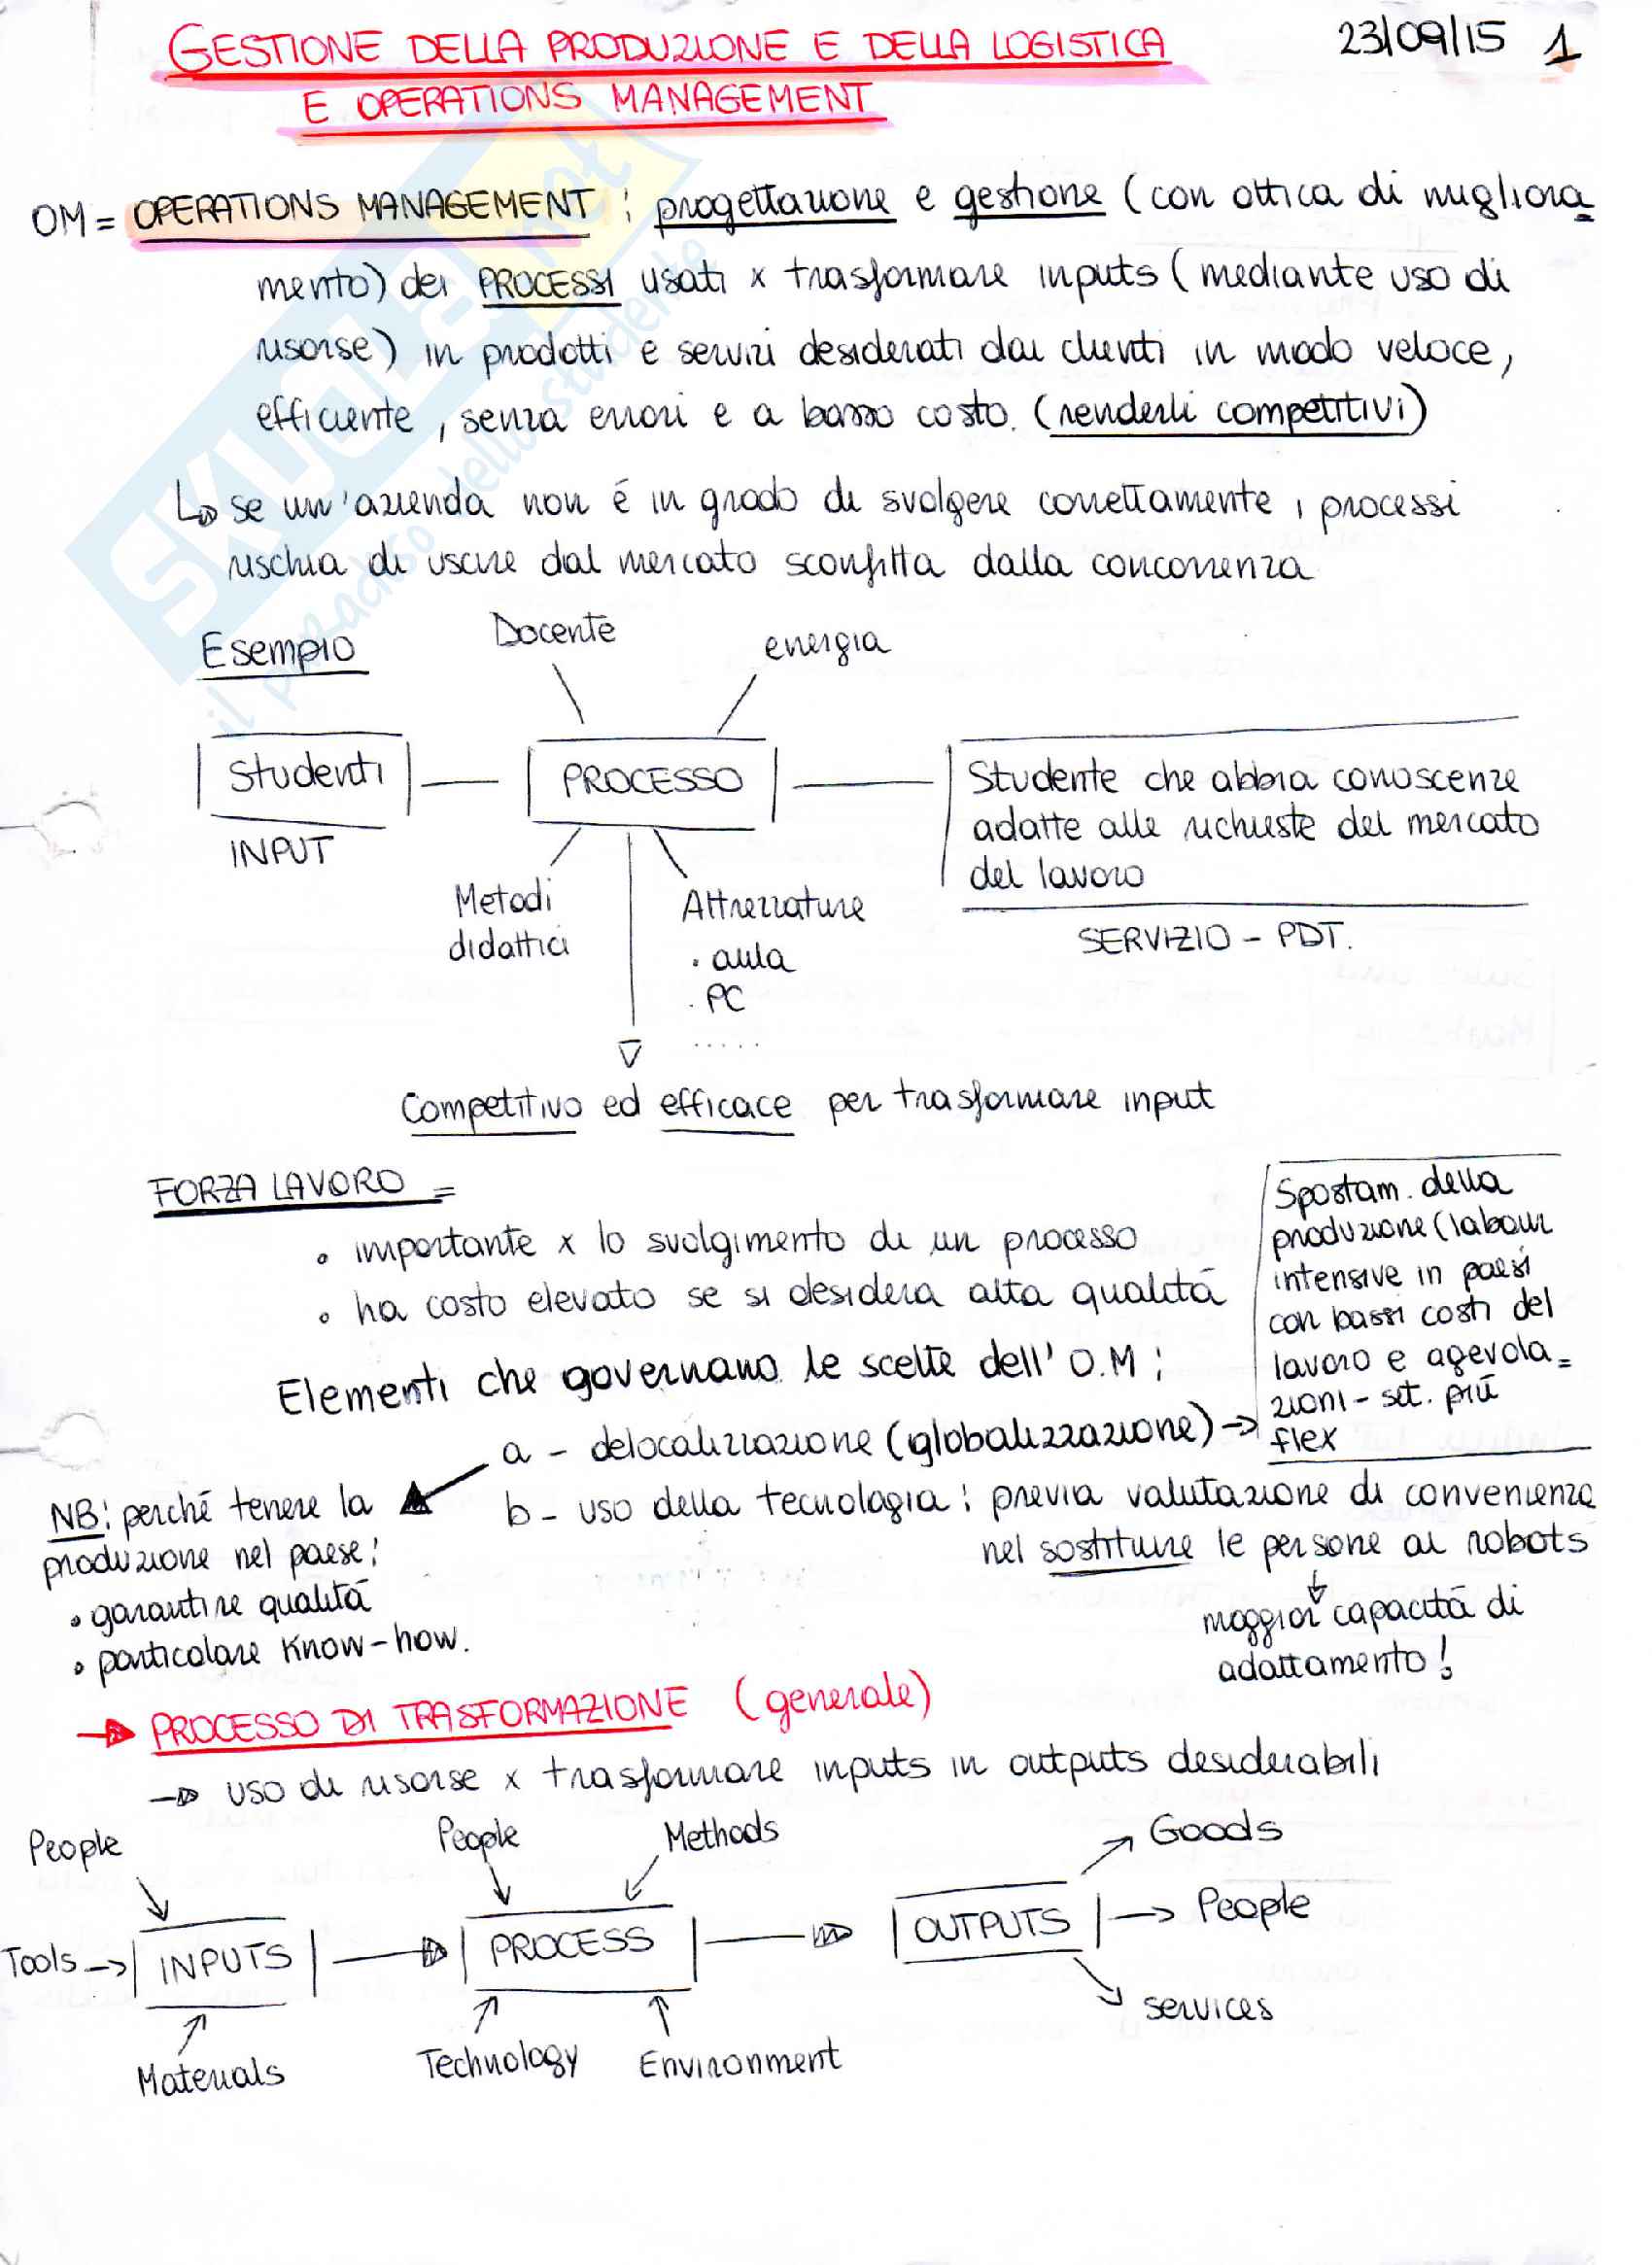 GESTIONE DELLA PRODUZIONE E DELLA LOGISTICA
E OPERATIONS MANAGEMENT
23/09/15 1
OM = OPERATIONS MANAGEMENT : progettazione e gestione (con ottica di migliora=
mento) dei PROCESSI usati x trasformare inputs (mediante uso di
risorse) in prodotti e servizi desiderati dai clienti in modo veloce,
efficiente, senza errori e a basso costo. (renderli competitivi)
se un'azienda non é in grado di svolgere correttamente i processi
rischia di uscire dal mercato sconfitta dalla concorrenza
Esempio
Docente
energia
Studenti
INPUT
PROCESSO
Studente che abbia conoscenze
adatte alle richieste del mercato
del lavoro
SERVIZIO - PDT.
Metodi
didattici
Attrezzature
• aula
• PC
.....
Competitivo ed efficace per trasformare input
FORZA LAVORO =
• importante x lo svolgimento di un processo
• ha costo elevato se si desidera alta qualità
Elementi che governano le scelte dell'O.M :
a - delocalizzazione (globalizzazione) →
Spostam. della
produzione (labour
intensive in paesi
con bassi costi del
lavoro e agevola=
zioni - set. più
flex
b - uso della tecnologia : previa valutazione di convenienza
nel sostituire le persone ai robots
maggior capacità di
adattamento!
NB: perché tenere la
produzione nel paese:
• garantire qualità
• particolare know-how.
→ PROCESSO DI TRASFORMAZIONE (generale)
→ uso di risorse x trasformare inputs in outputs desiderabili
People
Tools →
INPUTS
Materials
People
Methods
PROCESS
Technology
Environment
OUTPUTS
Goods
→ People
services
SKUOLA.net
il paradiso dello studente